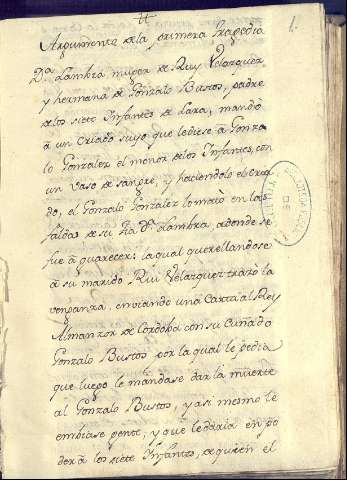 1.
Argumento de la primera tragedia
Dª Lambra muger de Ruy Velazquez
y hermana de Gonzalo Bustos, padre
de los siete Infantes de Lara, mandò
à un criado suyo que le diese à Gonza
lo Gonzalez el menor de los Infantes, con
un vaso de sangre, y haciendolo el cria
do, el Gonzalo Gonzalez lo matò en las
faldas de su tia Dª Lambra, adonde se
fue à guarecer: la qual querellandose
à su marido Rui Velazquez trazò la
venganza, enviando una Carta al Rey
Almanzor de Cordoba con su Cuñado
Gonzalo Bustos por la qual le pedia
que luego le mandase dar la muerte
al Gonzalo Bustos, y asi mesmo le
embiase gente, y que le daria en po
der à los siete Infantes, de quien el